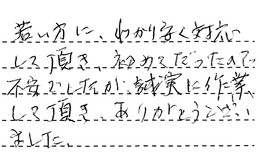 若い方に、わかり安く対応
して頂き、初めてだったので
不安でしたが、誠実に作業
して頂き、ありがとうござい
ました。